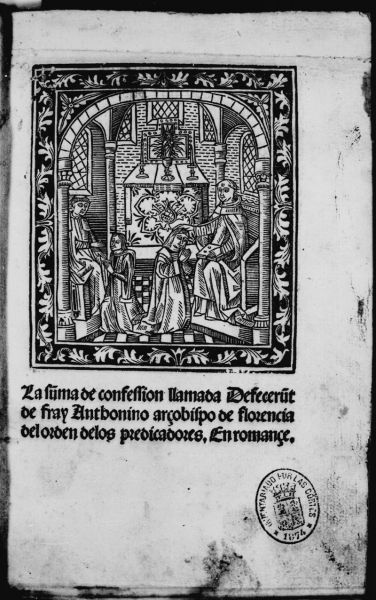 La sũma de confession llamada Defecerũt
de fray Anthonino arçobispo de florencia
del orden delos predicadores. En romançe.
INVENTARIADO POR LAS CORTES
1874